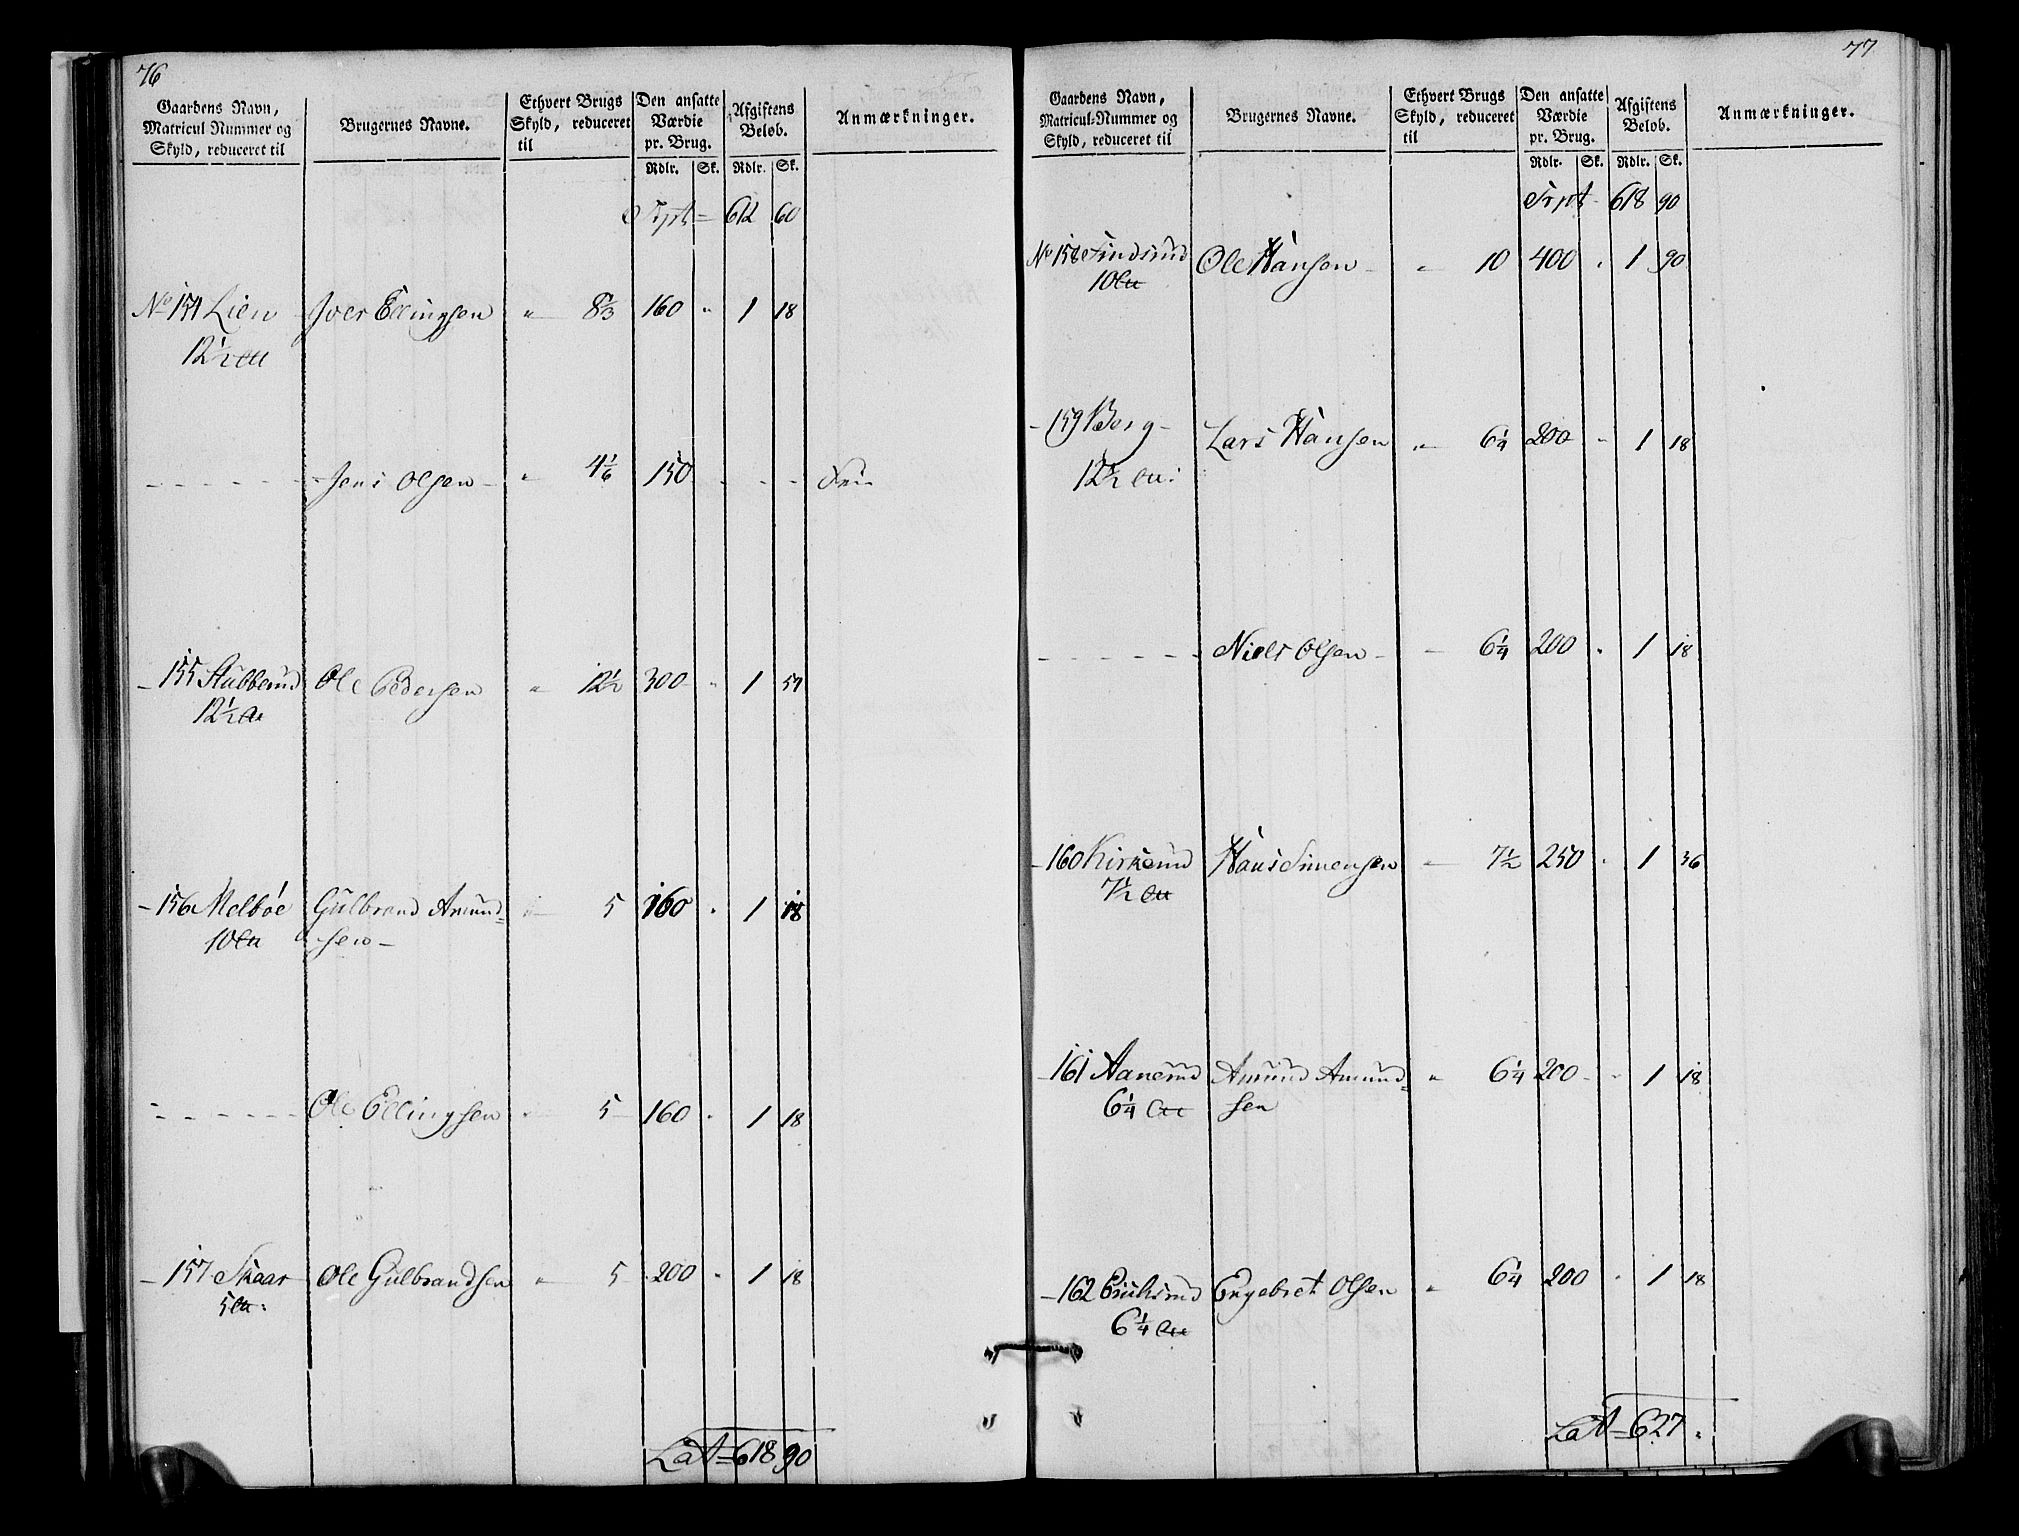 76
Gaardens Navn, Matricul Nummer og Skyld, reduceret til | Brugernes Navne. | Ethvert Brugs Skyld, reduceret til | Den ansatte Værdie pr. Brug. Rdlr. Sk. | Afgiftens Beløb. Rdlr. Sk. | Anmærkninger.
Trpt = 612 60
No 154 Lien Iver Ellingsen " 8 1/3 160 " 1 18
12 1/2
Jens Olsen " 4 1/6 150 - - - Frie
155 Stubberud Ole Pedersen " 12 1/2 300 " 1 54
12 1/2
156 Melbøe Gulbrand Amund= " 5 160 " 1 18
10 sen
Ole Ellingsen " 5 160 " 1 18
157 Skaar Ole Gulbrandsen " 5 200 " 1 18
5
Lat = 618 90
77
Gaardens Navn, Matricul-Nummer og Skyld, reduceret til | Brugernes Navne. | Ethvert Brugs Skyld, reduceret til | Den ansatte Værdie pr. Brug. Rdlr. Sk. | Afgiftens Beløb. Rdlr. Sk. | Anmærkninger.
Trpt 618 90
No 158 Findsrud Ole Hansen " 10 400 " 1 90
10
159 Berg Lars Hansen " 6 1/4 200 " 1 18
12 1/2
Niels Olsen - 6 1/4 200 " 1 18
160 Kirkerud Hans Simensen " 7 1/2 250 " 1 36
7 1/2
161 Aanerud Amund Amund= " 6 1/4 200 " 1 18
6 1/4 sen
162 Engebret Olsen " 6 1/4 200 " 1 18
6 1/4
Lat = 627 "